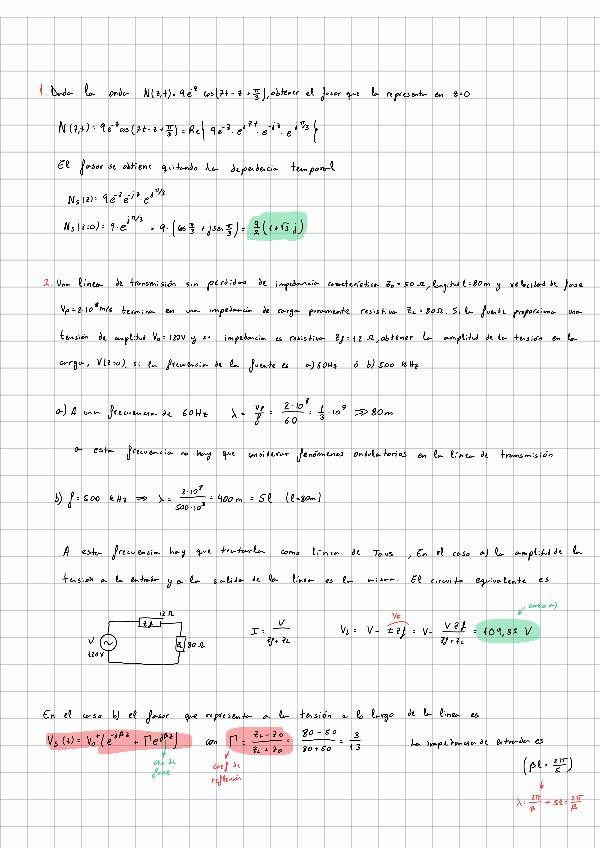 1. Dada la onda N(z,t) = 9e^-z cos(2t - z + π/3), obtener el fasor que la representa en z=0
N(z,t) = 9e^-z cos(2t - z + π/3) = Re{ 9e^-z · e^j2t · e^-jz · e^jπ/3 }
El fasor se obtiene quitando la dependencia temporal
Ns(z) = 9e^-z e^-jz e^jπ/3
Ns(z=0) = 9 · e^jπ/3 = 9 · (cos π/3 + j sen π/3) = 9/2 (1+√3 j)
2. Una línea de transmisión sin pérdidas de impedancia característica Z0 = 50 Ω, longitud l = 80m y velocidad de fase
Vp = 2·10^8 m/s termina en una impedancia de carga puramente resistiva ZL = 80Ω. Si la fuente proporciona una
tensión de amplitud V0 = 120V y su impedancia es resistiva Zf = 12 Ω, obtener la amplitud de la tensión en la
carga, V(z=0), si la frecuencia de la fuente es a) 60Hz ó b) 500 kHz
a) A una frecuencia de 60Hz λ = Vp/f = 2·10^8/60 = 1/3 · 10^7 >> 80m
a esta frecuencia no hay que considerar fenómenos ondulatorios en la línea de transmisión
b) f = 500 kHz ⟹ λ = 2·10^8/500·10^3 = 400m = 5l (l=80m)
A esta frecuencia hay que tratarla como línea de , En el caso a) la amplitud de la
tensión a la entrada y a la salida de la línea es la misma. El circuito equivalente es
caso a)
12 Ω
Zf
V
120V
ZL 80Ω
I = V/Zf+ZL
VL = V - IZf = V - VZf/Zf+ZL = 104,35 V
Vf
En el caso b) el fasor que representa a la tensión a lo largo de la línea es
Vs(z) = V0^+ [e^-jβz + Γe^jβz] con Γ = ZL-Z0/ZL+Z0 = 80-50/80+50 = 3/13 La impedancia de entrada es
cte de
fase
coef de
reflexión
(βl = 2π/5)
λ = 2π/β → 5l = 2π/β